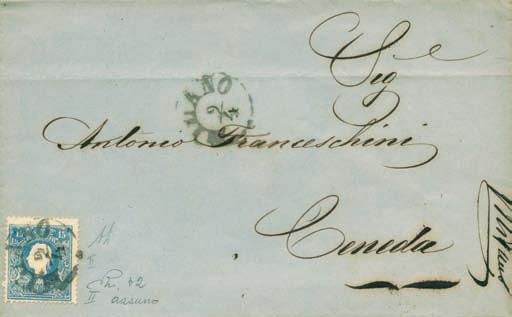 Sig.e
Antonio Franceschini
Ceneda
MIANO
2
4
15 15
II
Ch. 42
II assuno